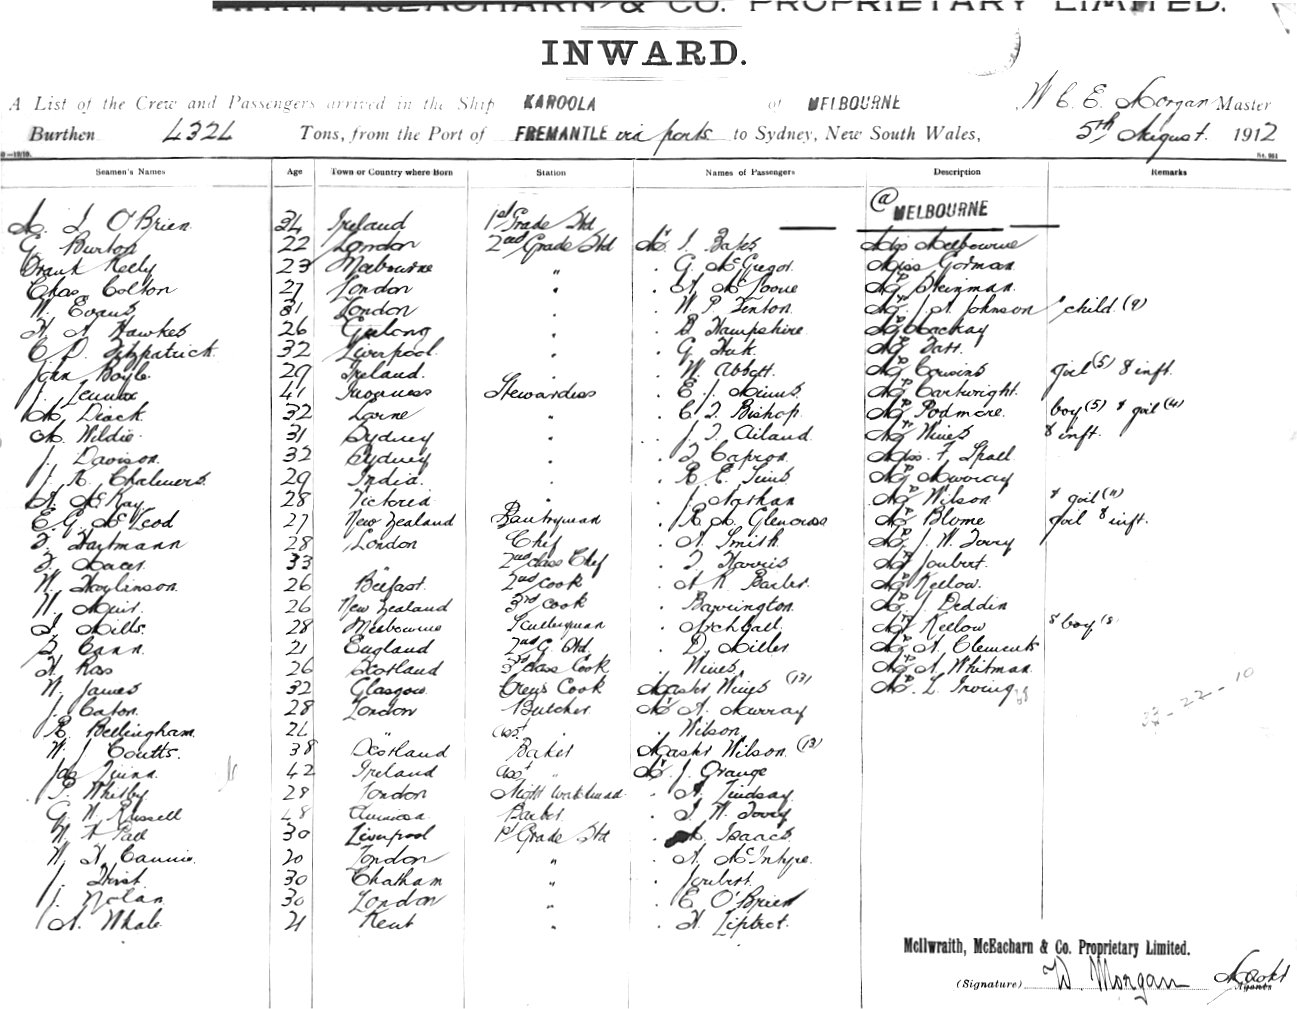 McEACHARN & CO. PROPRIETARY LIMITED.
INWARD.
A List of the Crew and Passengers arrived in the Ship KAROOLA of MELBOURNE W C E Morgan Master
Burthen 4324 Tons, from the Port of FREMANTLE via ports to Sydney, New South Wales, 5th August. 1912
Seamen's Names Age Town or Country where Born Station Names of Passengers Description Remarks
@ MELBOURNE
O'Brien 34 Ireland 1st Grade Std
G Burton 22 London 2nd Grade Std Mr J. Bates Miss Melbourne
Frank Kelly 23 Melbourne " . G. McGregor Miss Gorman
Chas. Colton 27 London " .
W. Evans 31 London . . W P. Fenton Mrs J. A Johnson & child (9)
Hawkes 26 Geelong . . Hampshire Mrs Mackay
Fitzpatrick 32 Liverpool . . G
John Boyle 29 Ireland . . W. Abbott. Mrs Cousins girl (5) & inft.
J. Lennox 41 Stewardess . E. J. Mrs Cartwright.
Diack 32 " . Bishop. Mrs Podmore. boy (5) & girl (4)
M. Wildie 31 Sydney . . J. Ailand Mrs Wines & inft.
J. Davison 32 Sydney . . Capron. Miss F.
J. R. Chalmers 29 India. . . R. E. Mrs Murray
A. McKay 28 Victoria " . J. Nathan Mrs Wilson & girl (11)
E. G. McLeod 27 New Zealand Pantryman . R. Glencross Mrs Blome girl & inft.
Hartmann 28 London Chef . A. Smith. Mrs J. W. Torry
33 " 2nd class Chef . Harris Mrs Joubert.
W. Tomlinson 26 Belfast. 2nd Cook . A R. Barber. Mrs Kellow.
W. Muir. 26 New Zealand 3rd Cook . Barrington. Mrs J. Deddin
Mills. 28 Melbourne Sculleryman . Archball. Mrs Kellow & boy (8
Cann. 21 England 2nd G. Std. . D. Miller Mrs A. Clements
Ross 26 Scotland 3rd class Cook . Wines Mrs A. Whitman.
W. James 32 Glasgow. Crews Cook Master Wines (13) Mr. L. Irving
J. Caton. 28 London Butcher. Mr A. Murray
R. Bellingham. " asst . Wilson.
W. J. Coutts. 38 Scotland Baker Master Wilson. (13)
Jas Quinn. 42 Ireland asst " Mr J. Orange
Whitby 28 London Night watchman . A. Lindsay
G. W. Russell 48 Barber. . J. W. Torry
30 Liverpool 1st Grade Std . Isaacs
W. H. 20 London " . A. McIntyre.
J. Hirst 30 Chatham " . Joubert.
J. Nolan 30 London " . E O'Brien
A. Whale. 21 Kent . . H. Liptrot.
33 - 22 - 10
McIlwraith, McEacharn & Co. Proprietary Limited.
(Signature) W. Morgan
Agents